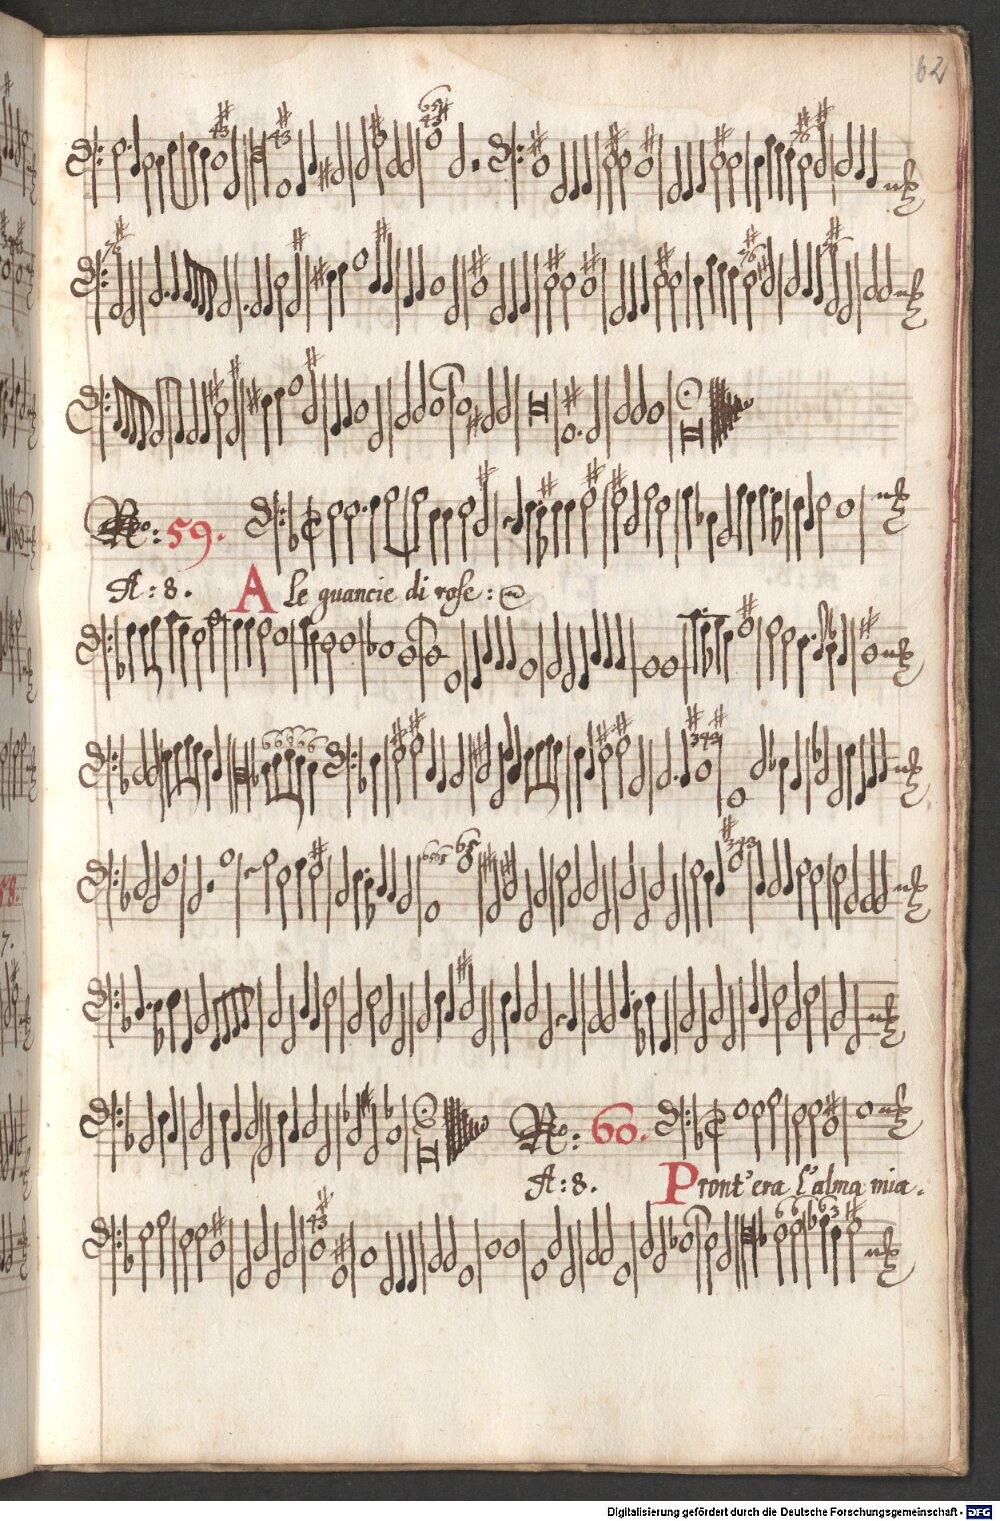 62
No: 59.
A: 8. A le guancie di rose:
No: 60.
A: 8. Pront'era l'alma mia.
58.
7.
Digitalisierung gefördert durch die Deutsche Forschungsgemeinschaft - DFG